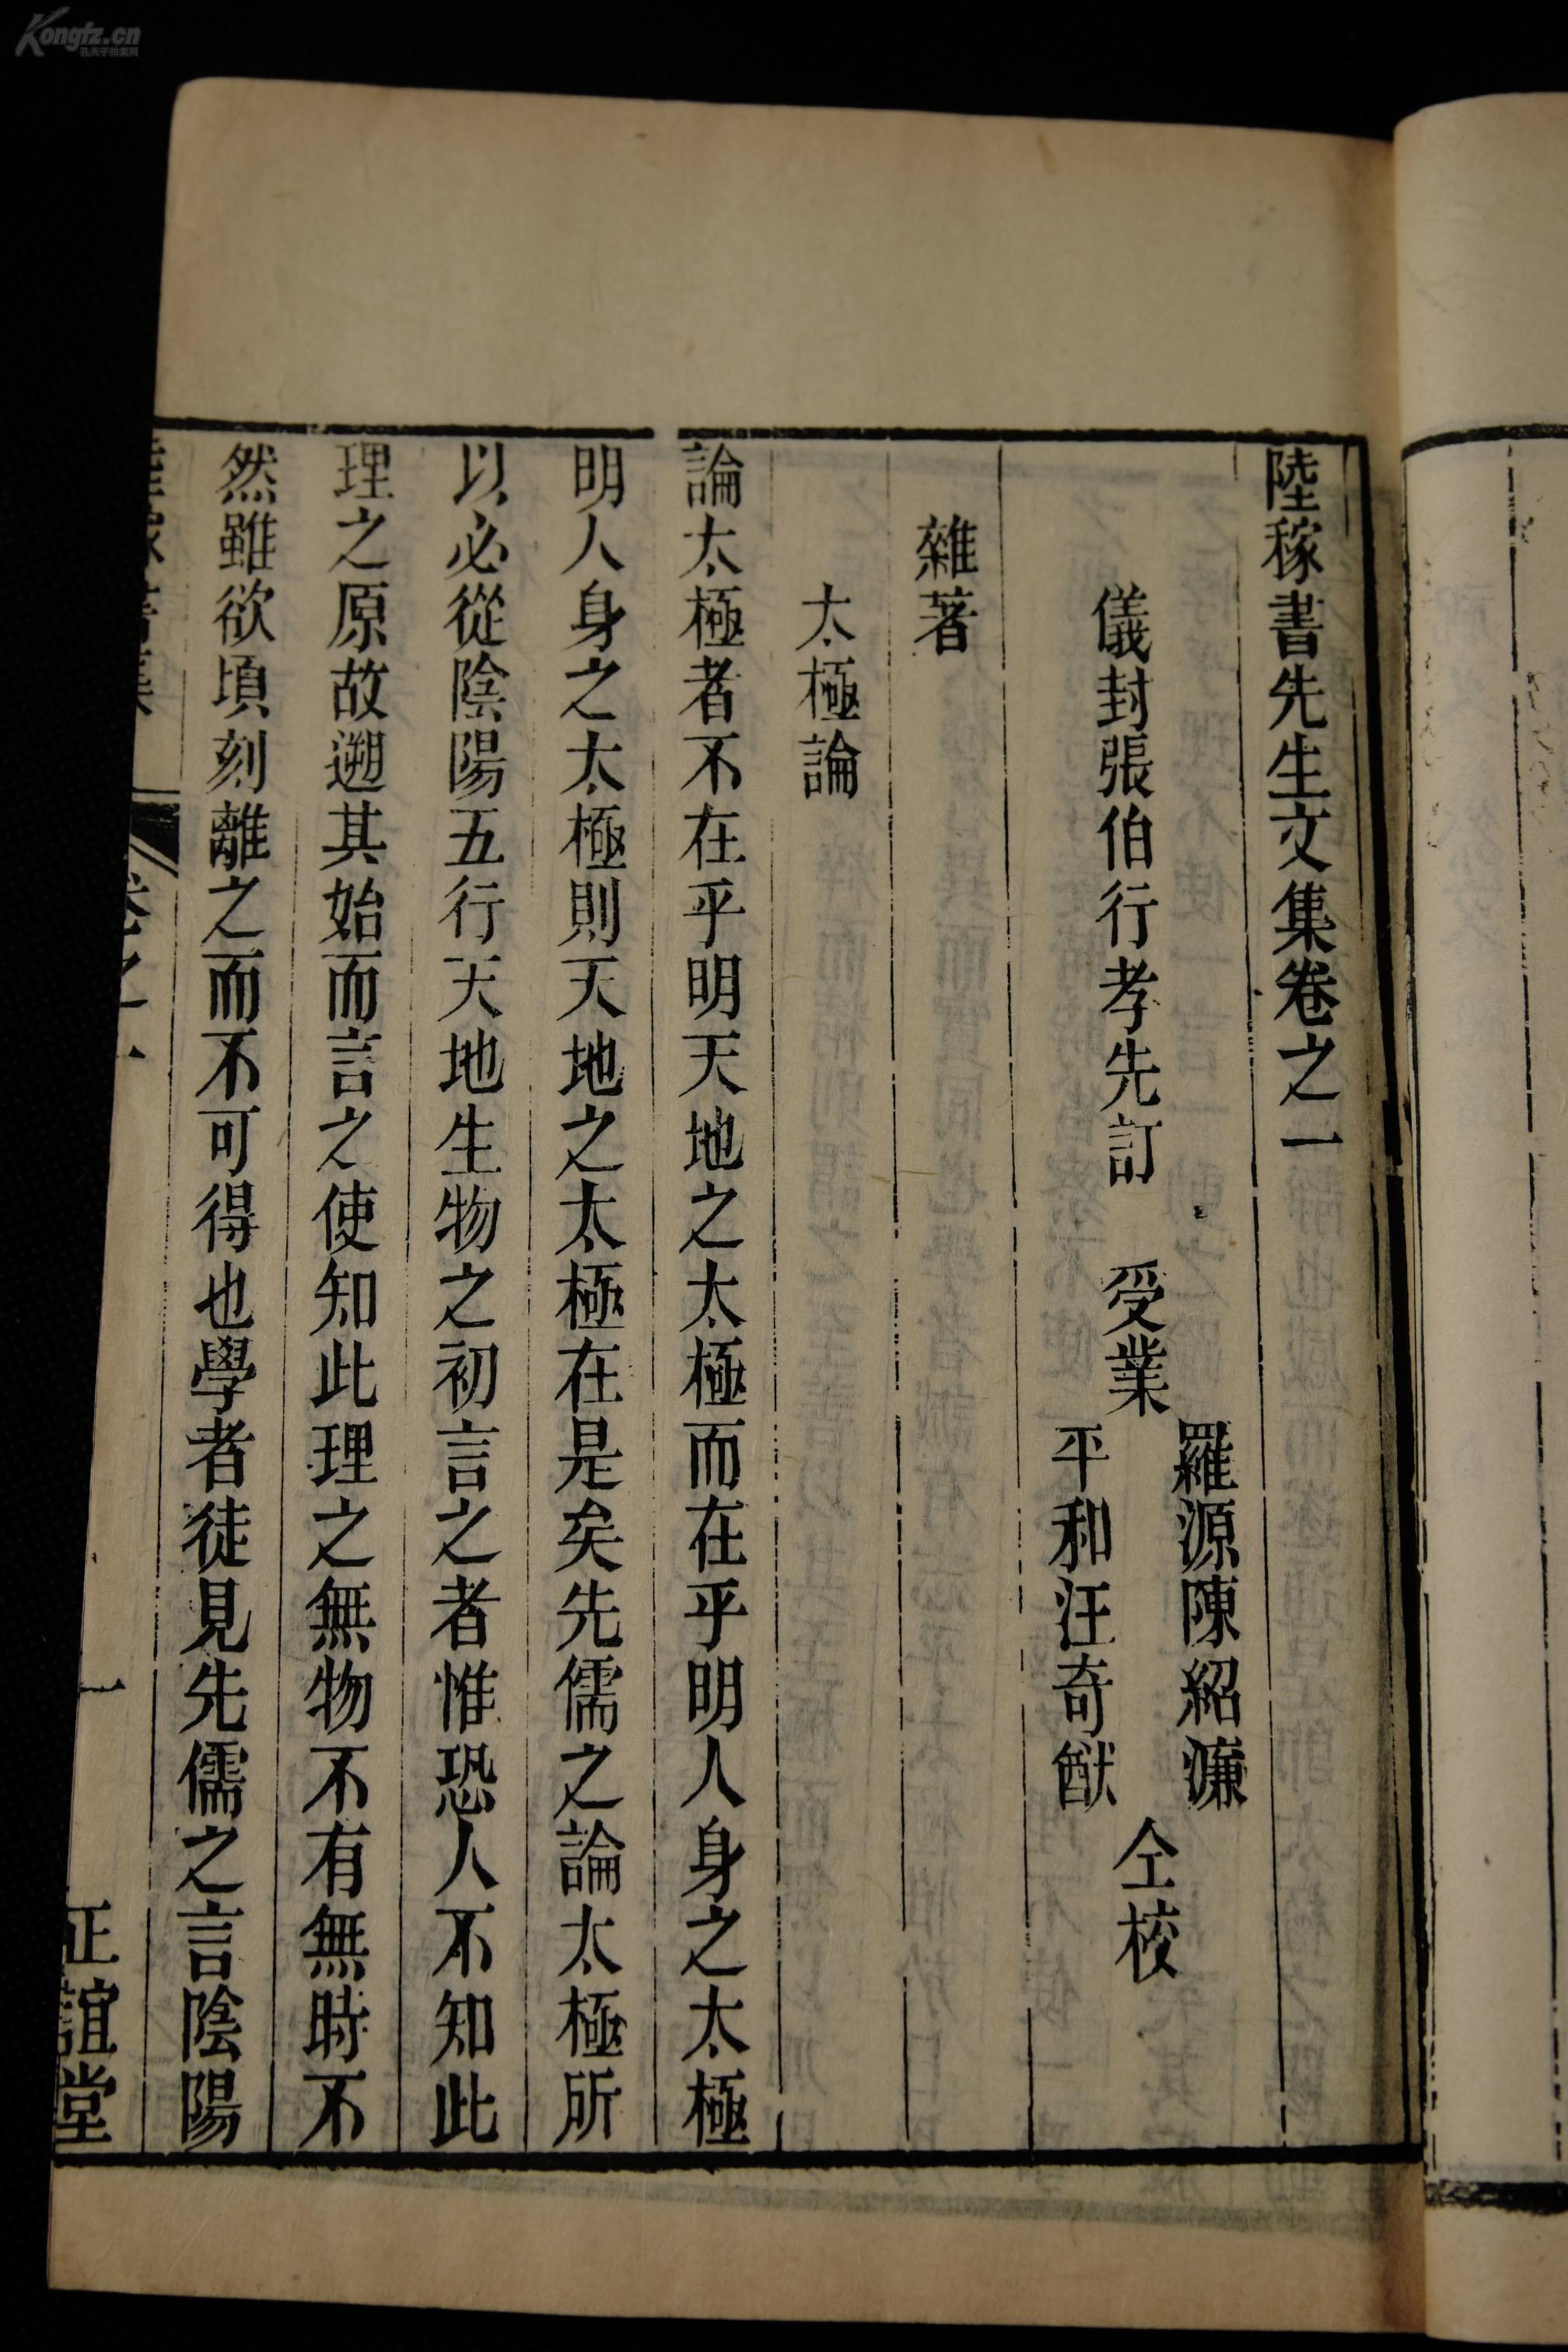 陸稼書先生文集卷之一
儀封張伯行孝先訂 受業
羅源陳紹濂
平和汪奇猷
仝校
雜著
太極論
論太極者不在乎明天地之太極而在乎明人身之太極
明人身之太極則天地之太極在是矣先儒之論太極所
以必從陰陽五行天地生物之初言之者惟恐人不知此
理之原故遡其始而言之使知此理之無物不有無時不
然雖欲頃刻離之而不可得也學者徒見先儒之言陰陽
卷之一
一
正誼堂
Kongfz.cn
孔夫子拍卖网